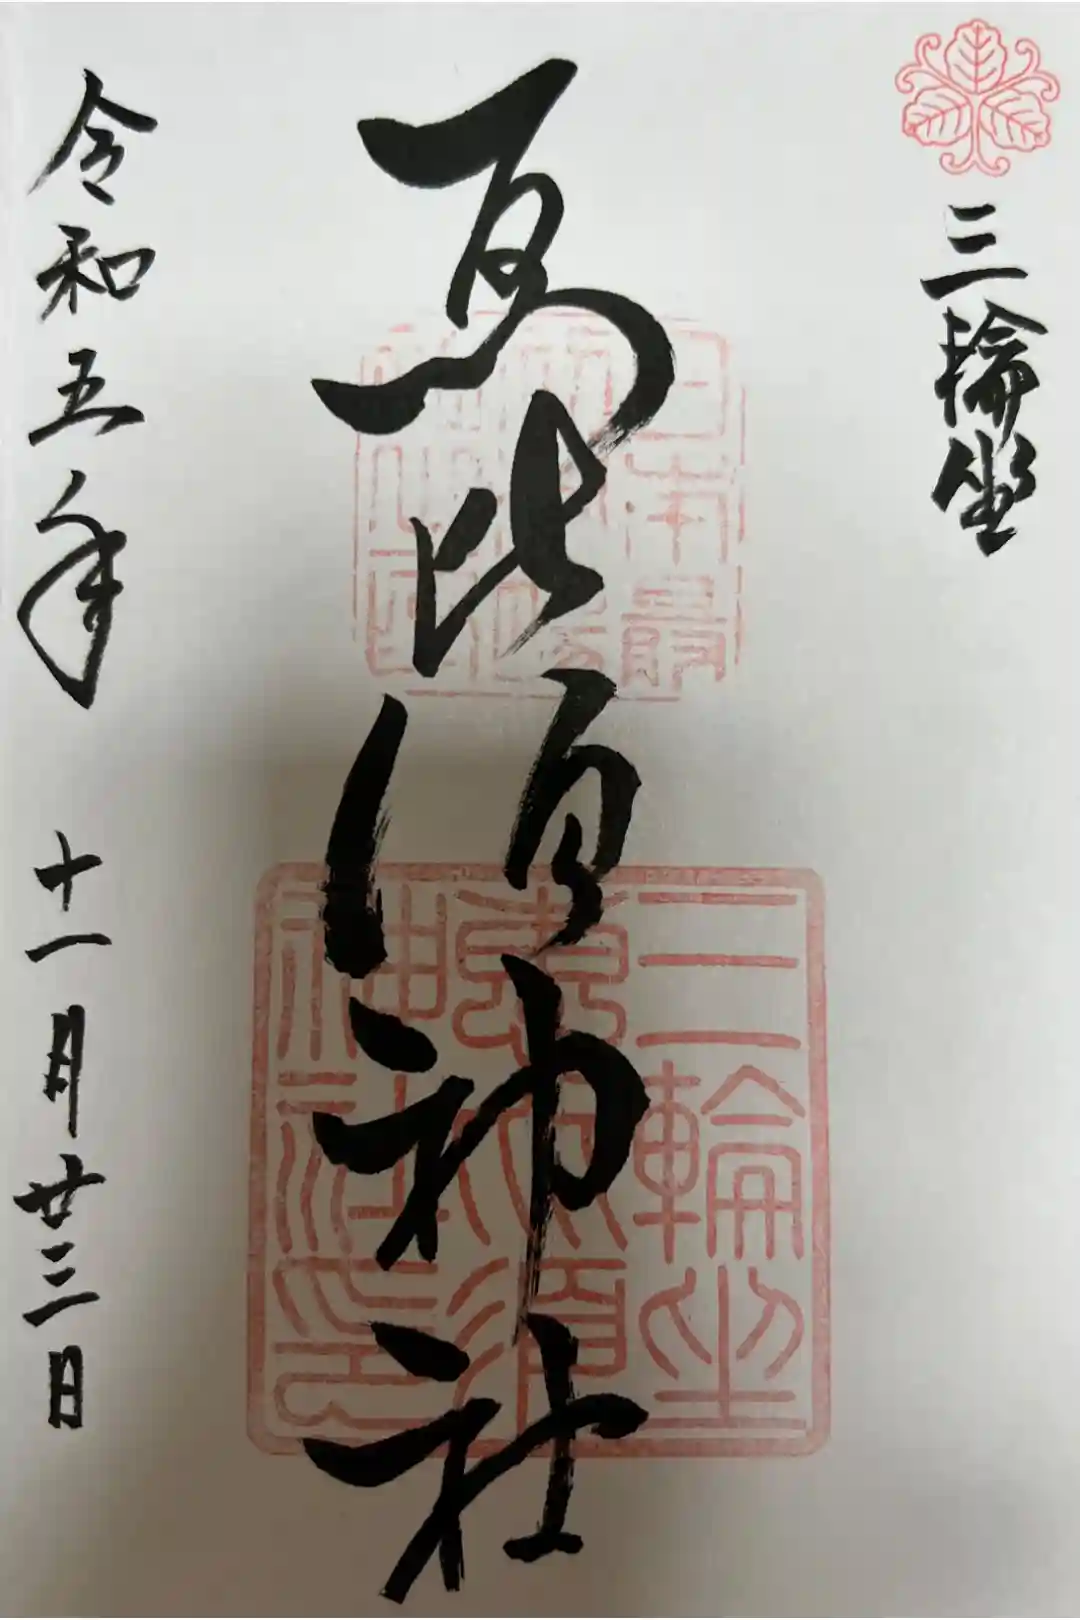 三輪坐
恵比須神社
令和五年 十一月廿三日
日本最
三輪坐
惠比須
神社印